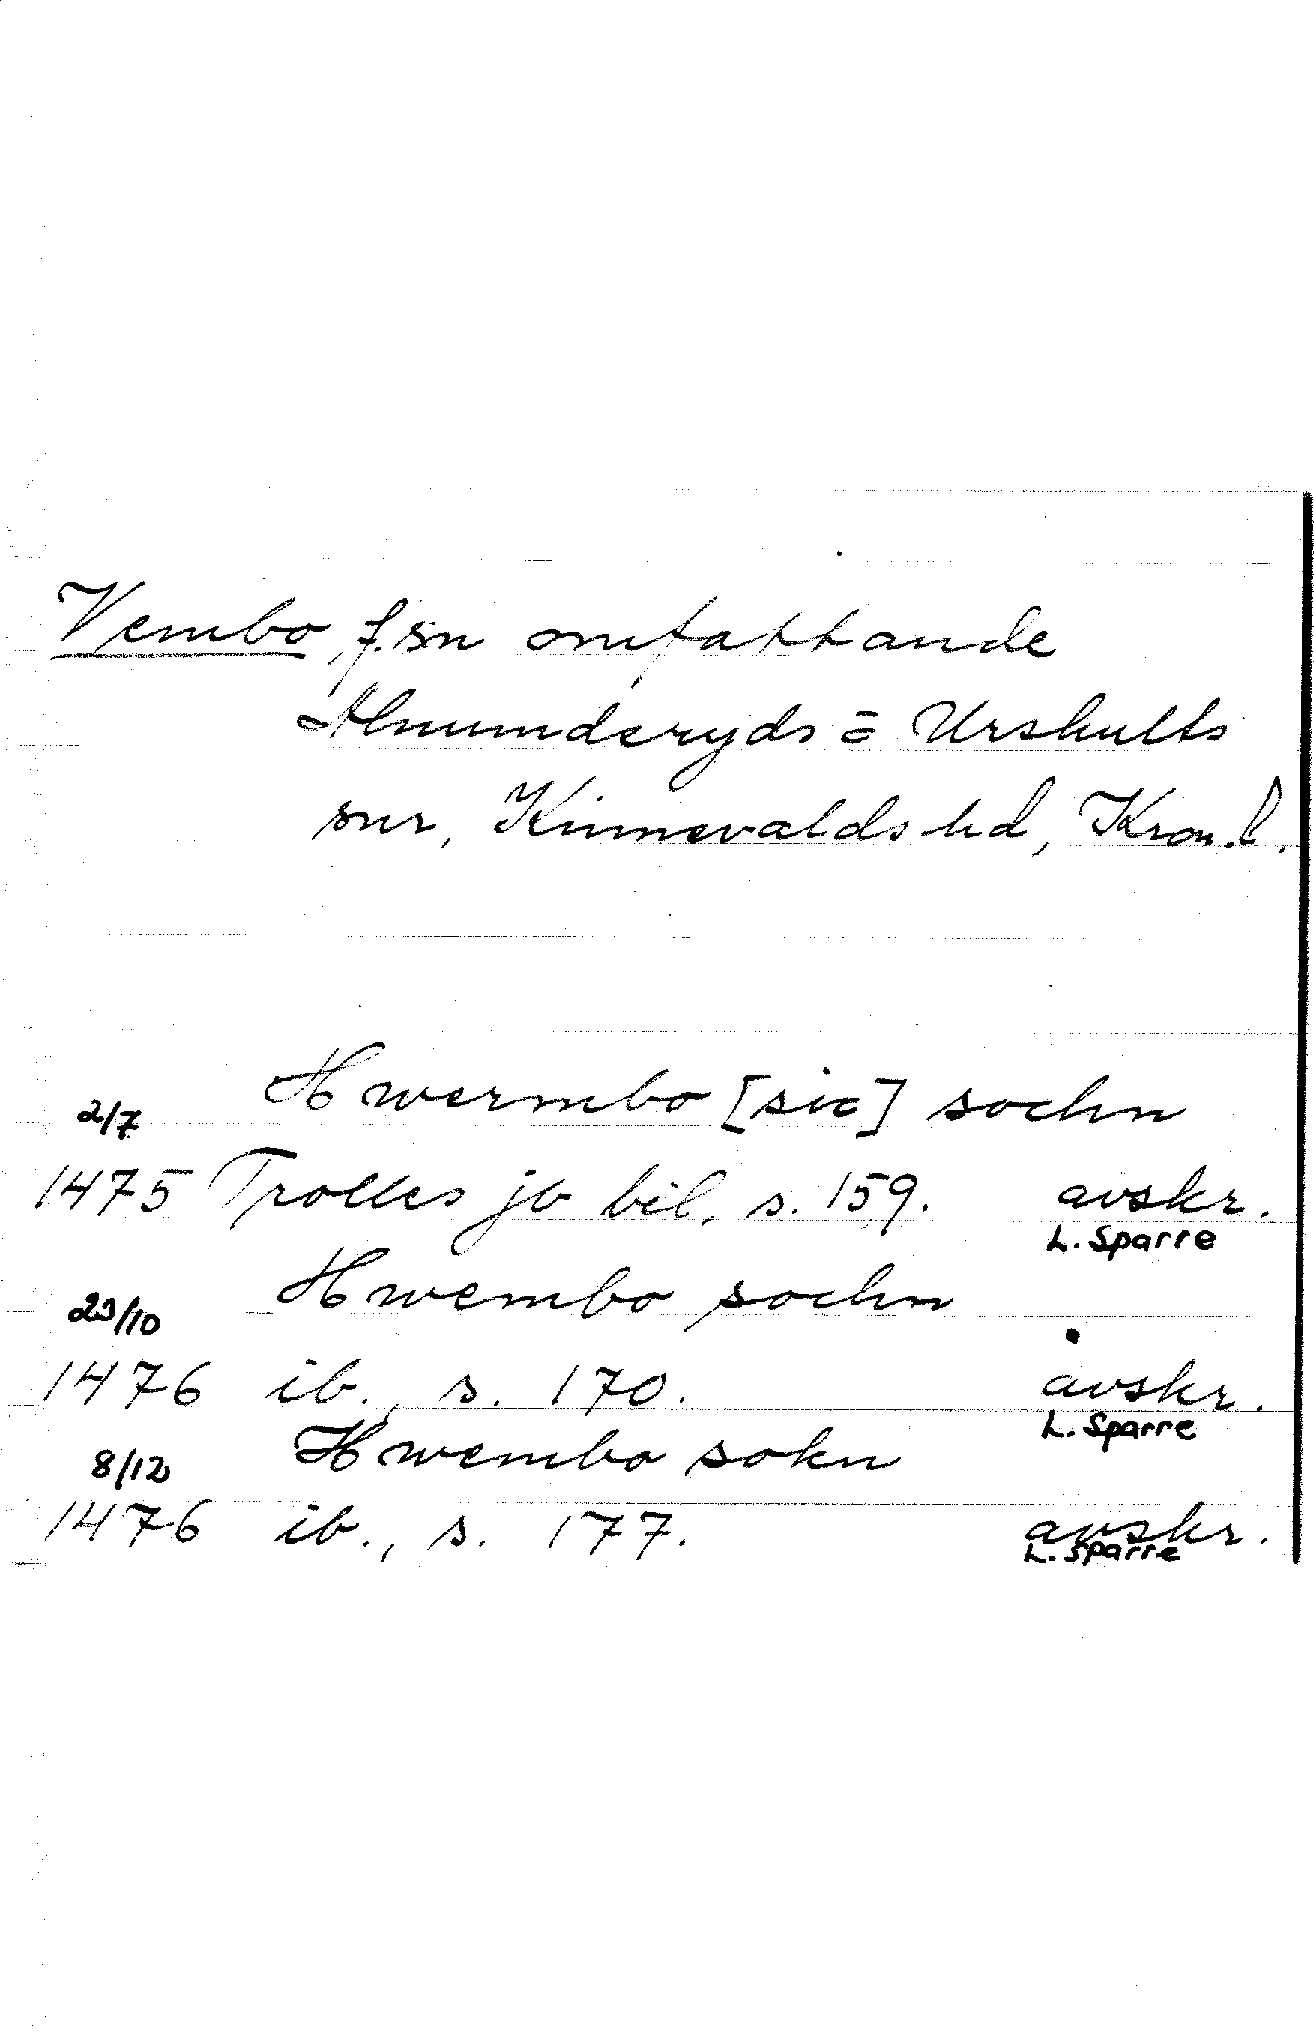 Vembo, f. sn omfattande
Almunderyds o Urshults
snr, Kinnevalds hd, Kron.l.
Hwermbo [sic] sochn
2/7
1475 Trolles jb bil. s. 159. avskr.
L. Sparre
Hwembo sochn
23/10
1476 ib., s. 170. avskr.
L. Sparre
Hwembo sokn
8/12
1476 ib., s. 177. avskr.
L. Sparre